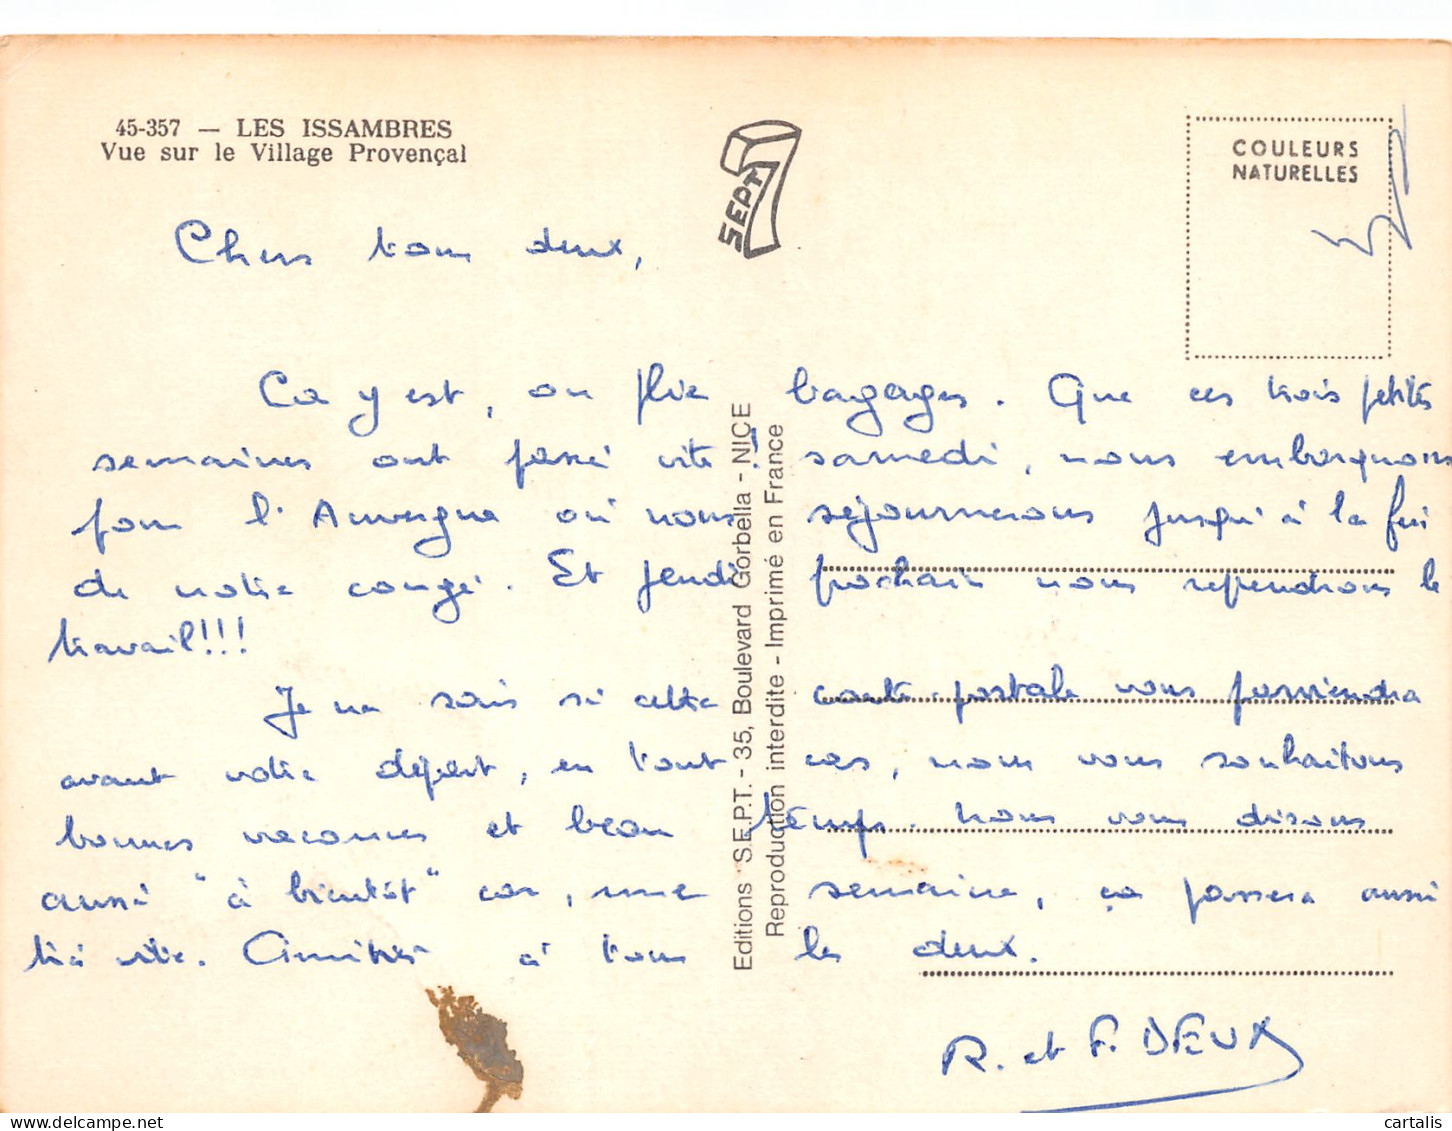 45-357 — LES ISSAMBRES
Vue sur le Village Provençal
SEPT
COULEURS
NATURELLES
Chers tous deux,
Ca y est, on plie bagages. Que ces trois petites
semaines ont passé vite ! samedi, nous embarquons
pour l'Auvergne où nous séjournerons jusqu'à la fin
de notre congé. Et jeudi prochain nous reprendrons le
travail!!!
Je ne sais si cette carte-postale vous parviendra
avant votre départ, en tout cas, nous vous souhaitons
bonnes vacances et beau temps. Nous vous disons
aussi "à bientôt" car, une semaine, ça passera aussi
très vite. Amitiés à tous les deux.
R. et F. DEUX
Editions S.E.P.T. - 35, Boulevard Gorbella - NICE
Reproduction interdite - Imprimé en France
cartalis